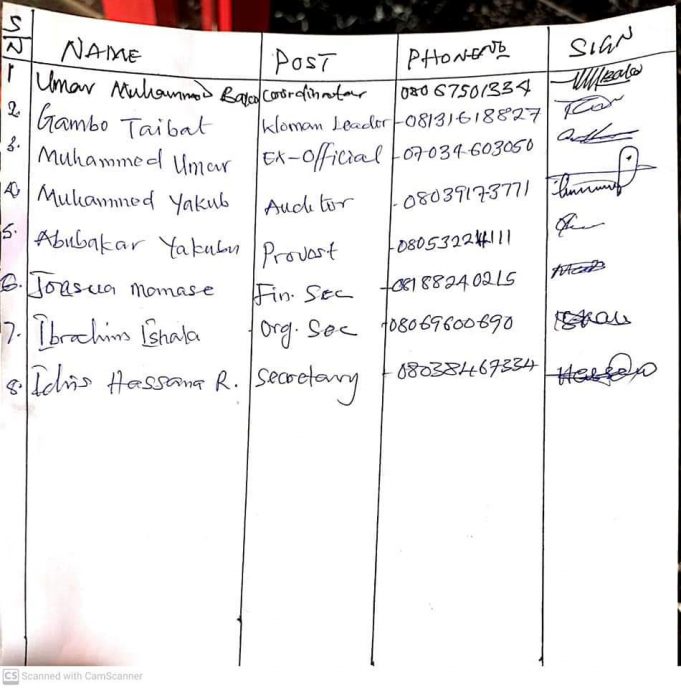 S/N NAME POST PHONE NO SIGN
1 Umar Muhammad coordinator 08067501334
2. Gambo Taibat Woman Leader - 08131618827
3. Muhammed Umar Ex-Official - 07034603050
4. Muhammed Yakub Auditor - 08039173771
5. Abubakar Yakubu Provost - 08053224111
6. Joasua momase Fin. Sec - 08188240215
7. Ibrahim Ishala Org. Sec - 08069600690
8. Idris Hassana R. Secretary - 08038467334
CS Scanned with CamScanner